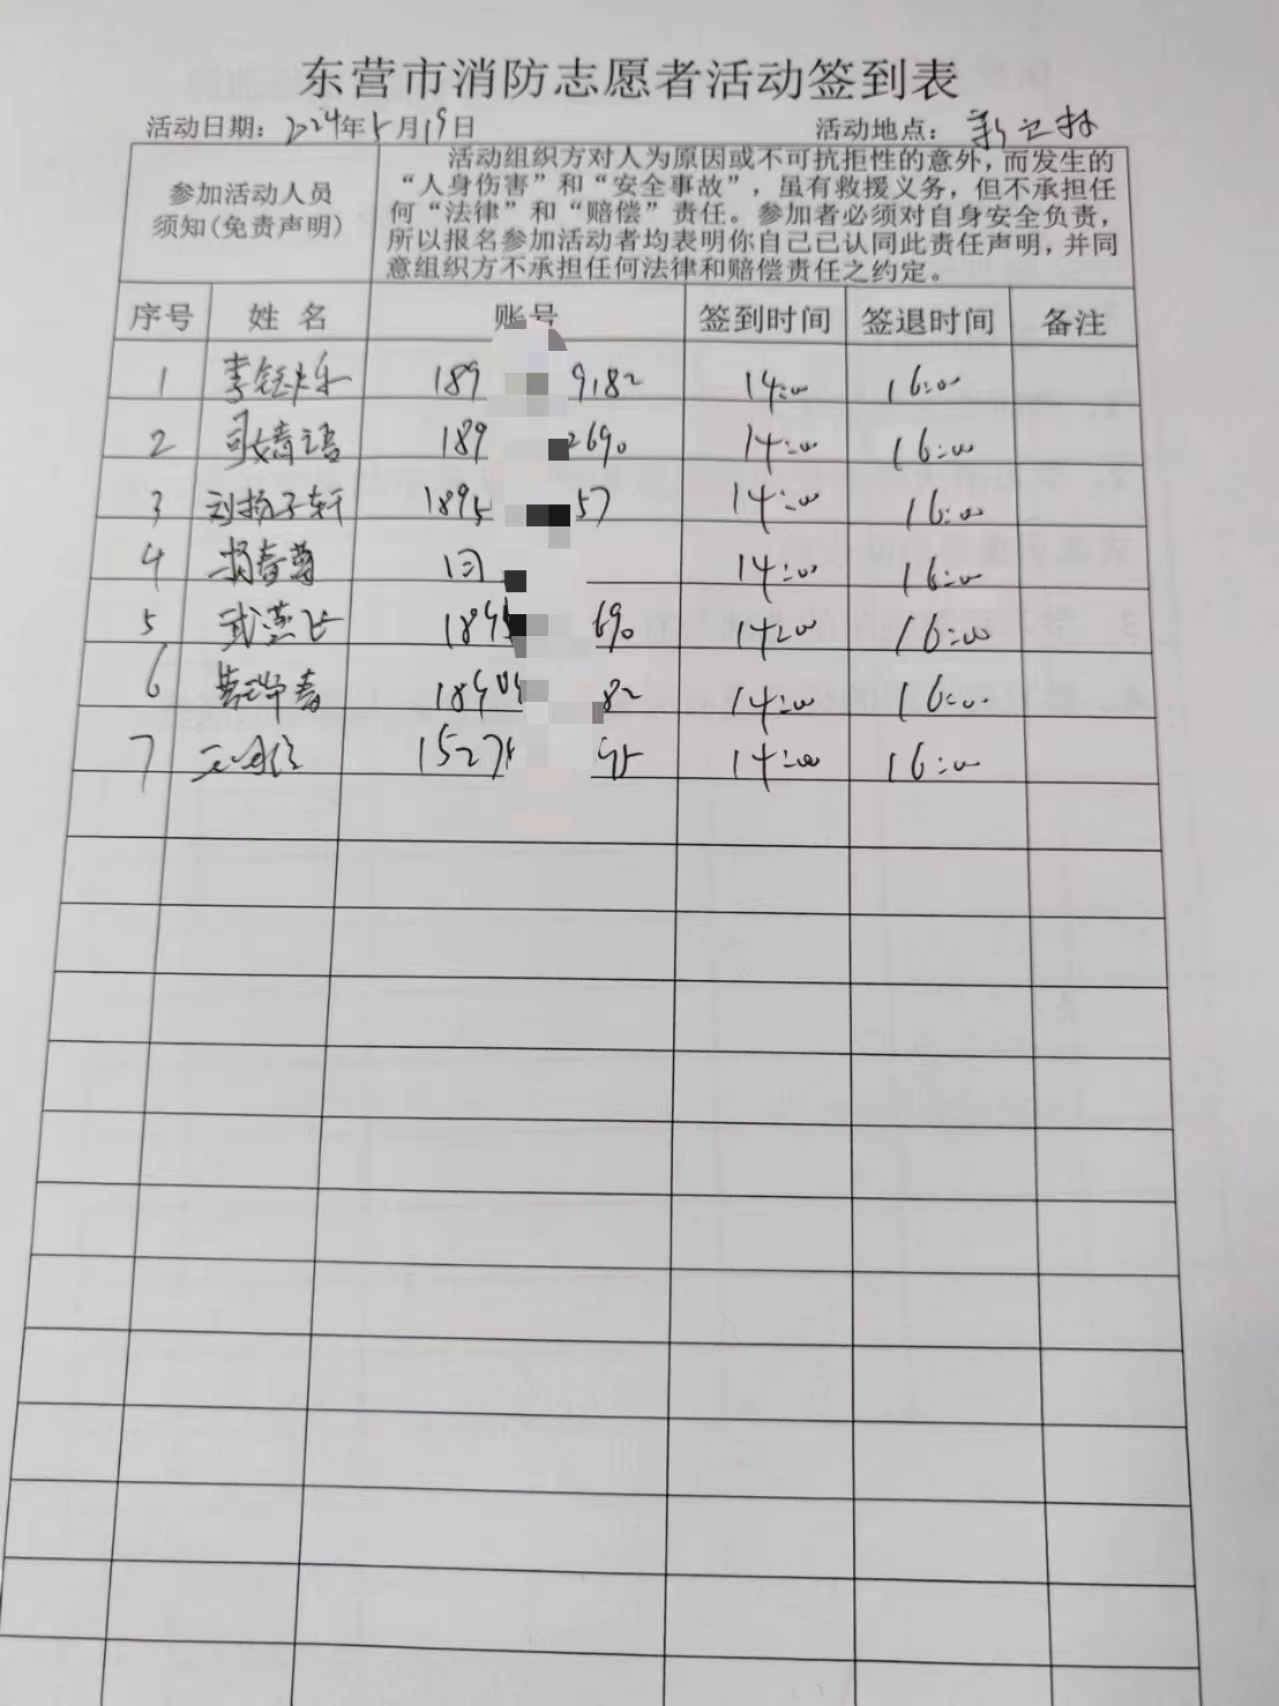 东营市消防志愿者活动签到表
活动日期：2024年5月19日 活动地点：
参加活动人员
须知(免责声明)
活动组织方对人为原因或不可抗拒性的意外，而发生的
“人身伤害”和“安全事故”，虽有救援义务，但不承担任
何“法律”和“赔偿”责任。参加者必须对自身安全负责，
所以报名参加活动者均表明你自己已认同此责任声明，并同
意组织方不承担任何法律和赔偿责任之约定。
序号 姓名 账号 签到时间 签退时间 备注
1 李钰乐 189 9182 14:00 16:00
2 司婧语 189 2690 14:00 16:00
3 刘杨子轩 1895 57 14:00 16:00
4 杨春尊 同 14:00 16:00
5 武燕飞 189 690 14:00 16:00
6 18 82 14:00 16:00
7 1527 14:00 16:00